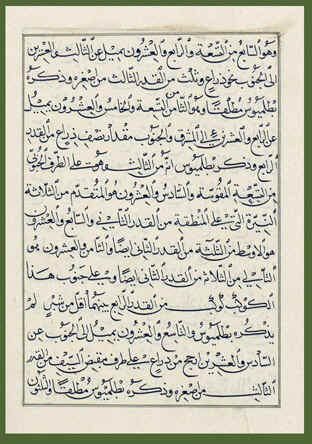 وهو السابع من التسعة والرابع والعشرون يميل عن الثالث والعشرين
الى الجنوب نحو ذراع وثلث من القدر الثالث من اصغره وذكره
بطلميوس مطلقا وهو الثامن من التسعة والخامس والعشرون يميل
عن الرابع والعشرين الى المشرق والجنوب مقدار نصف ذراع من القدر
الرابع وذكر بطلميوس انه من الثالث وهو على الطرف الجنوبي
من التسعة المقوسة والسادس والعشرون هو المتقدم من الثلاثة
النيرة التي على المنطقة من القدر الثاني والسابع والعشرون
هو الاوسط من الثلثة من القدر الثاني ايضا والثامن والعشرون هو
التالي من الثلاثة من القدر الثاني ايضا وعلى جنوب هذا
الكوكب كوكب من القدر الرابع بينهما اقل من شبر لم
يذكره بطلميوس والتاسع والعشرون يميل الى الجنوب عن
السادس والعشرين ارجح من ذراع على طرف مقبض السيف من القدر
الثالث من اصغره وذكره بطلميوس مطلقا والثلثون